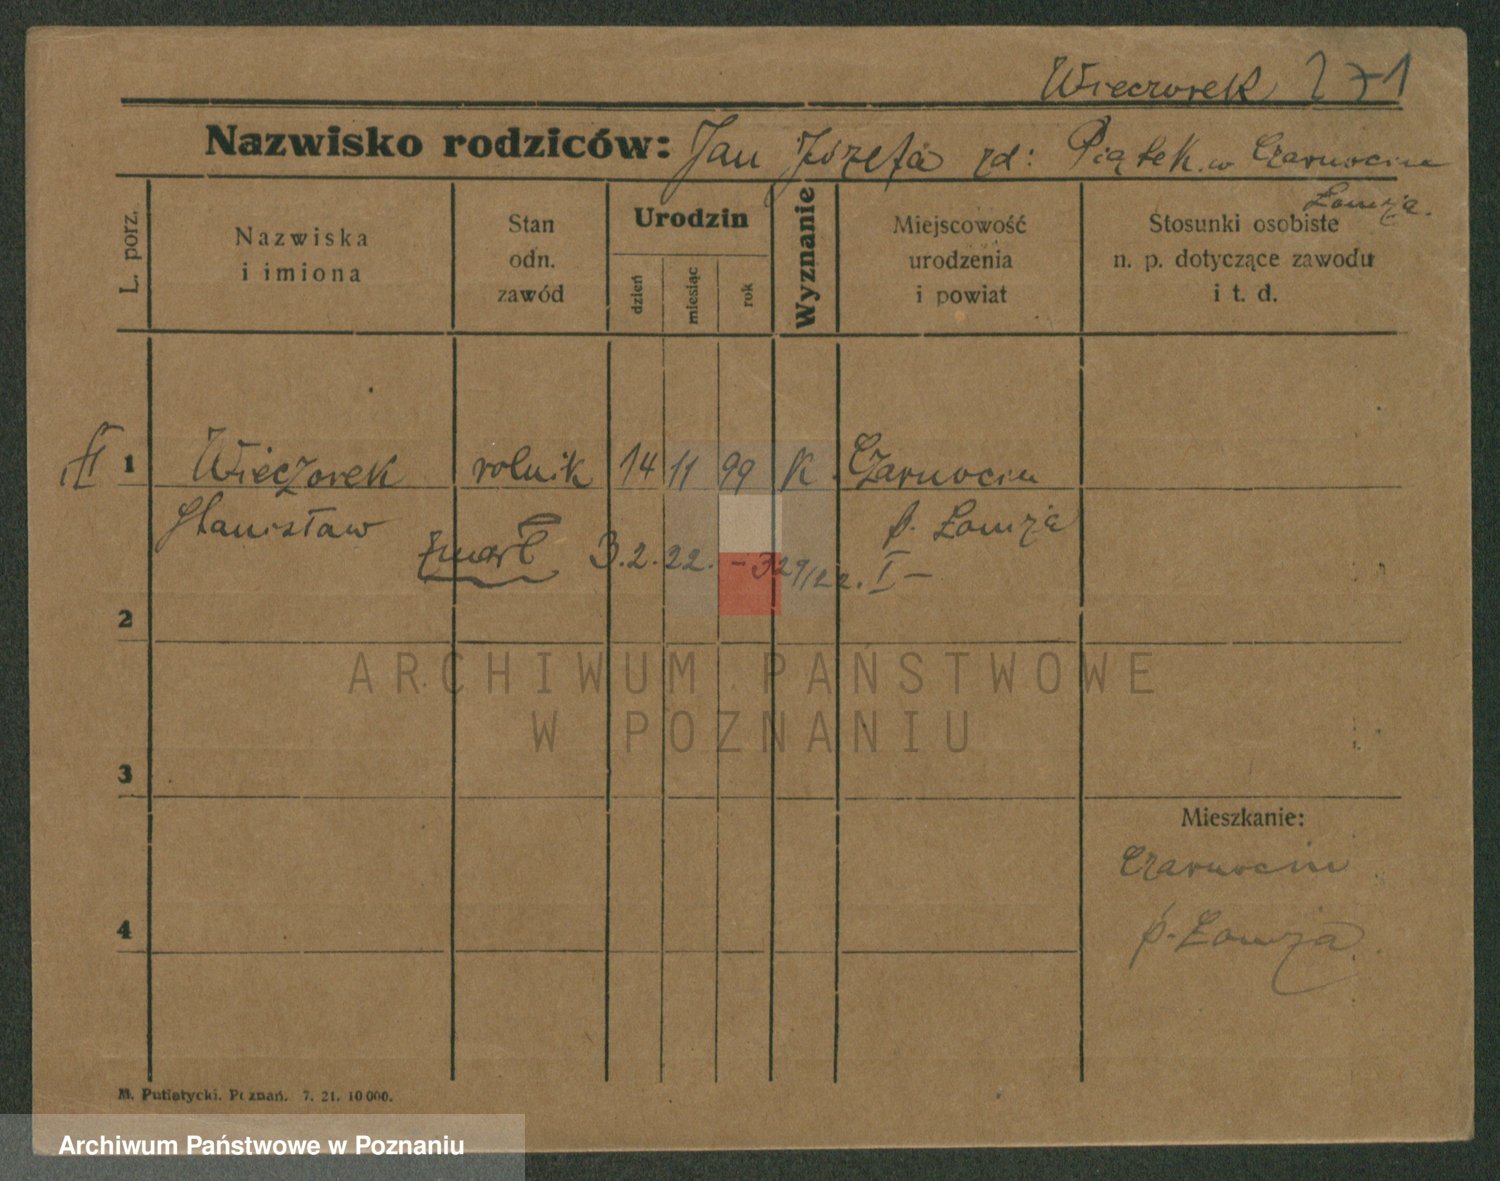 Wieczorek 271
Nazwisko rodziców: Jan Józefa zd: Piątek w Czarnocin
Łomża.
L. porz.
Nazwiska
i imiona
Stan
odn.
zawód
Urodzin
dzień
miesiąc
rok
Wyznanie
Miejscowość
urodzenia
i powiat
Stosunki osobiste
n. p. dotyczące zawodu
i t. d.
1 Wieczorek rolnik 14 11 99 K. Czarnocin
Stanisław p. Łomża
zmarł 3.2.22. - 329/22. I -
2
3
4
Mieszkanie:
Czarnocin
p. Łomża.
ARCHIWUM PAŃSTWOWE
W POZNANIU
M. Putiatycki. Poznań. 7. 21. 10 000.
Archiwum Państwowe w Poznaniu